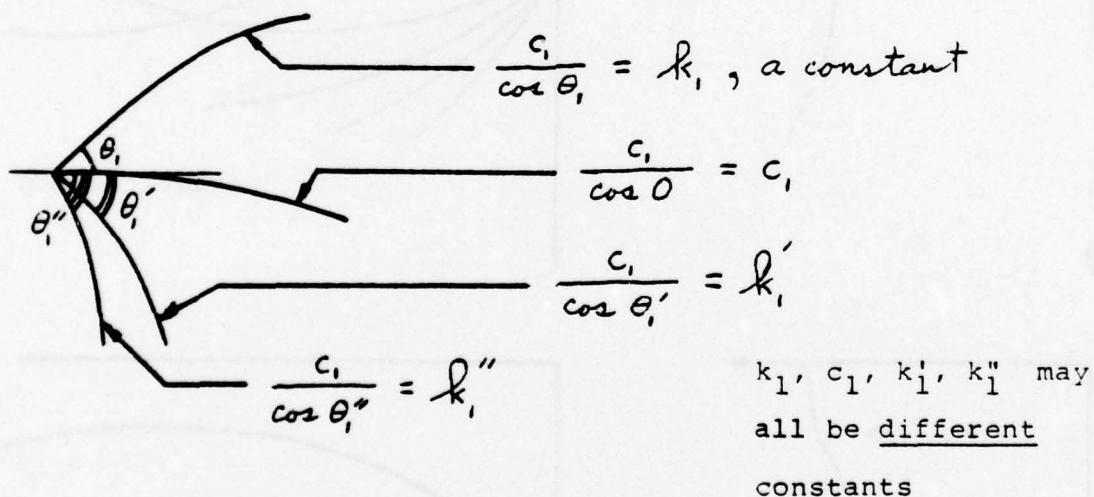 c₁ / cos θ₁ = k₁ , a constant
θ₁
c₁ / cos 0 = c₁
θ₁″ θ₁′
c₁ / cos θ₁′ = k₁′
c₁ / cos θ₁″ = k₁″
k₁, c₁, k₁′, k₁″ may
all be different
constants